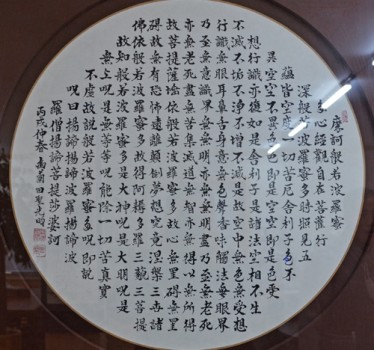 摩訶般若波羅蜜
多心經觀自在菩薩行
深般若波羅蜜多時照見五
蘊皆空度一切苦厄舍利子色不
異空空不異色色即是空空即是色受
想行識亦復如是舍利子是諸法空相不生
不滅不垢不淨不增不減是故空中無色無受想
行識無眼耳鼻舌身意無色聲香味觸法無眼界
乃至無意識界無無明亦無無明盡乃至無老死
亦無老死盡無苦集滅道無智亦無得以無所得
故菩提薩埵依般若波羅蜜多故心無罣礙無罣
礙故無有恐怖遠離顛倒夢想究竟涅槃三世諸
佛依般若波羅蜜多故得阿耨多羅三藐三菩提
故知般若波羅蜜多是大神呪是大明呪是
無上呪是無等等呪能除一切苦真實
不虛故說般若波羅蜜多呪即說
呪曰揭諦揭諦波羅揭諦波
羅僧揭諦菩提莎婆訶
丙戌仲春 田